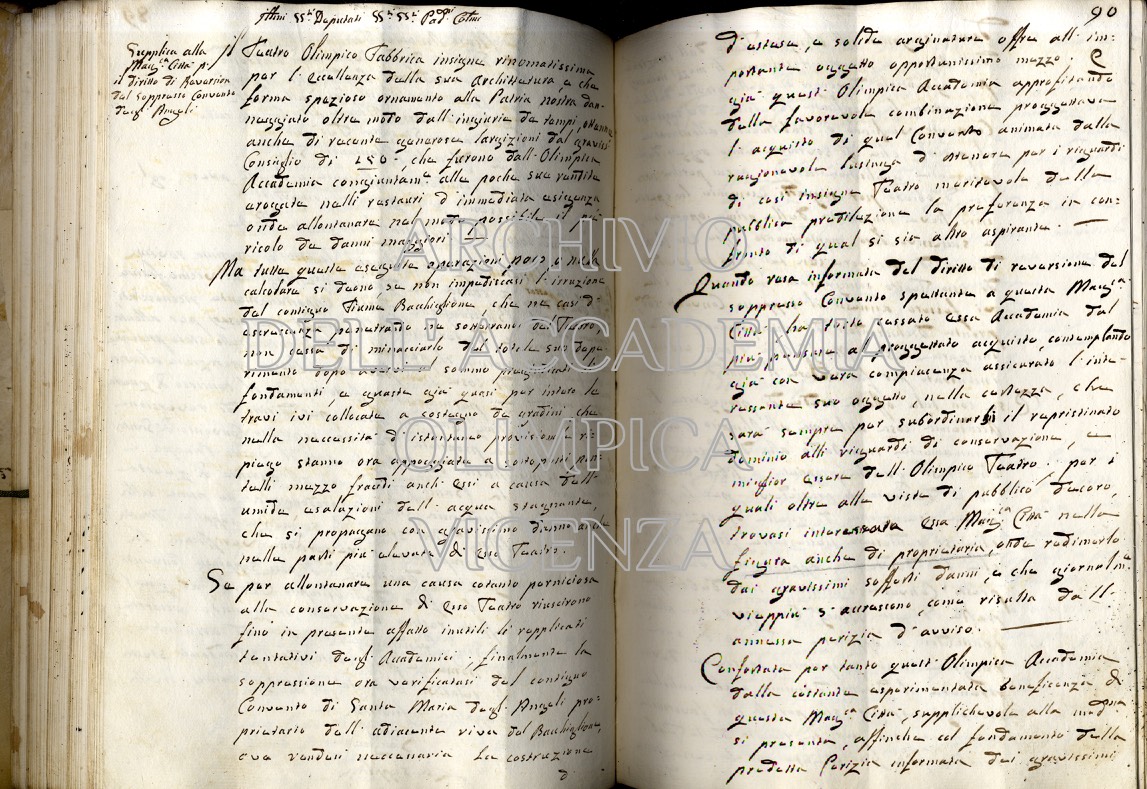 Supplica alla
Mag.ca Città p.
il diritto di Reversion
del soppresso Convento
degl' Angeli
Ill.mi SS.ri Deputati SS.ri SS.ri Pad.ni Col.mi
Il Teatro Olimpico Fabbrica insigne rinomatissima
per l'eccellenza della sua Architettura e che
forma spezioso ornamento alla Patria nostra dan-
neggiato oltre modo dall'ingiurie de tempi, ottenne
anche di recente generose largizioni dal graviss.
Consiglio di 150 che furono dall'Olimpica
Accademia congiuntam.e alle poche sue rendite
erogate nelli restauri d'immediata esigenza
onde allontanare nel modo possibile il pe-
ricolo de danni maggiori
Ma tutte queste eseguite operazioni poco o nulla
calcolare si deono se non impediscasi l'irruzione
del contiguo Fiume Bacchiglione che ne casi d'
escrescenza penetrando ne sotterranei del Teatro
non cessa di minacciarlo del totale suo depe-
rimento dopo averne sommo pregiudicati li
fondamenti, e guaste già quasi per intero le
travi ivi collocate a sostegno de gradini che
nella neccessità d'istantaneo provisional ri-
piego stanno ora appoggiate a sottoposti pon-
telli mezzo fracidi anch'essi a causa dell'
umide esalazioni dell'acqua stagnante,
che si propagano con gravissimo danno anche
nelle parti più elevate di esso Teatro.
Se per allontanare una causa cotanto perniciosa
alla conservazione di esso Teatro riuscirono
fino in presente affatto inutili li replicati
tentativi degl'Accademici, finalmente la
soppressione ora verificatasi del contiguo
Convento di Santa Maria degl'Angeli pro-
prietario dell'adiacente riva del Bacchiglione,
ove rendesi neccessaria la costruzione
d'
90
d'estesa, e solida arginatura offre all'im-
portante oggetto opportunissimo mezzo; E
già quest'Olimpica Accademia approfittando
della favorevole combinazione proggettava
l'acquisto di quel Convento animata dalla
ragionevole lusinga d'ottenere per i riguardi
di così insigne Teatro meritevole della
pubblica predilezione la preferenza in con-
fronto di qual si sia altro aspirante.
Quando resa informata del diritto di reversione del
soppresso Convento spettante a questa Mag.ca
Città ha tosto cessato essa Accademia dal
più pensare al proggettato acquisto, contemplando
già con vera compiacenza assicurato l'inte-
ressante suo oggetto, nella certezza, che
sarà sempre per subordinarsi il ripristinato
dominio alli riguardi di conservazione, e
miglior essere dell'Olimpico Teatro, per i
quali oltre alle viste di pubblico decoro,
trovasi interessata essa Mag.ca Città nella
figura anche di proprietaria, onde redimerlo
dai gravissimi sofferti danni, e che giornalm.e
vieppiù s'accrescono, come risulta dall'
annessa perizia d'avviso.
Confortata per tanto quest'Olimpica Accademia
dalla costante esperimentata beneficenza di
questa Mag.ca Città, supplichevole alla med.ma
si presenta, affinchè col fondamento della
predetta Perizia informata dei gravissimi
ARCHIVIO
DELL'ACCADEMIA
OLIMPICA
VICENZA